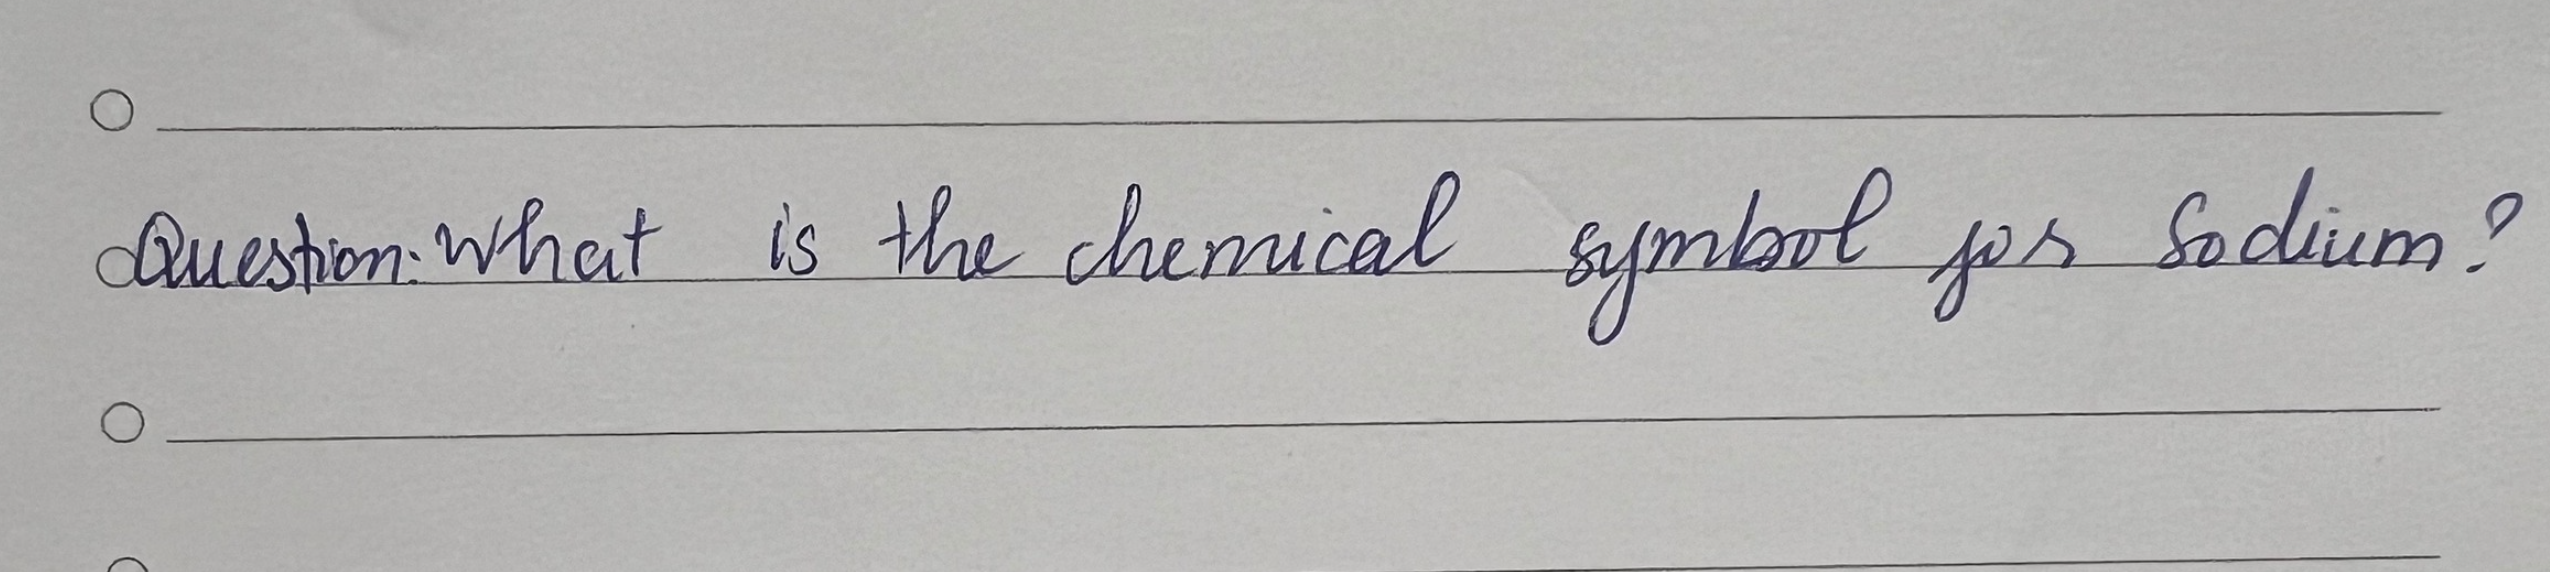 Question: What is the chemical symbol for Sodium?